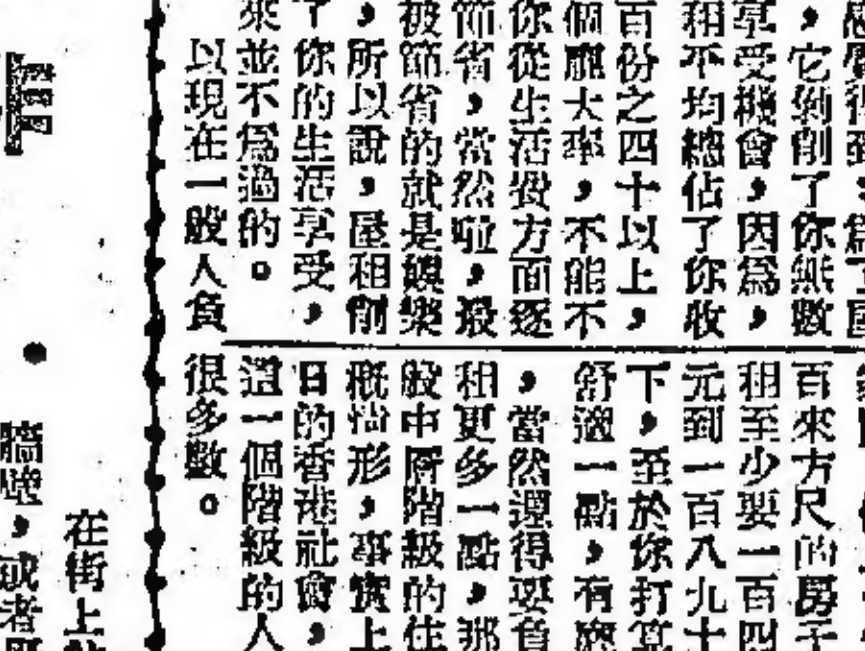 感覺得到，為了區
，它剝削了你無數
享受機會，因為，
租不均總佔了你收
百份之四十以上，
個龐大率，不能不
你從生活費方面逐
節省，當然啦，最
被節省的就是娛樂
，所以說，屋租削
了你的生活享受，
來並不為過的。
以現在一般人負
百來方尺的房子
租至少要一百四
元到一百八九十
下，至於你打算
舒適一點，有廳
，當然還得要負
租更多一點，那
般中層階級的住
概情形，事實上
日的香港社會，
這一個階級的人
很多數。
在街上
牆壁，或者